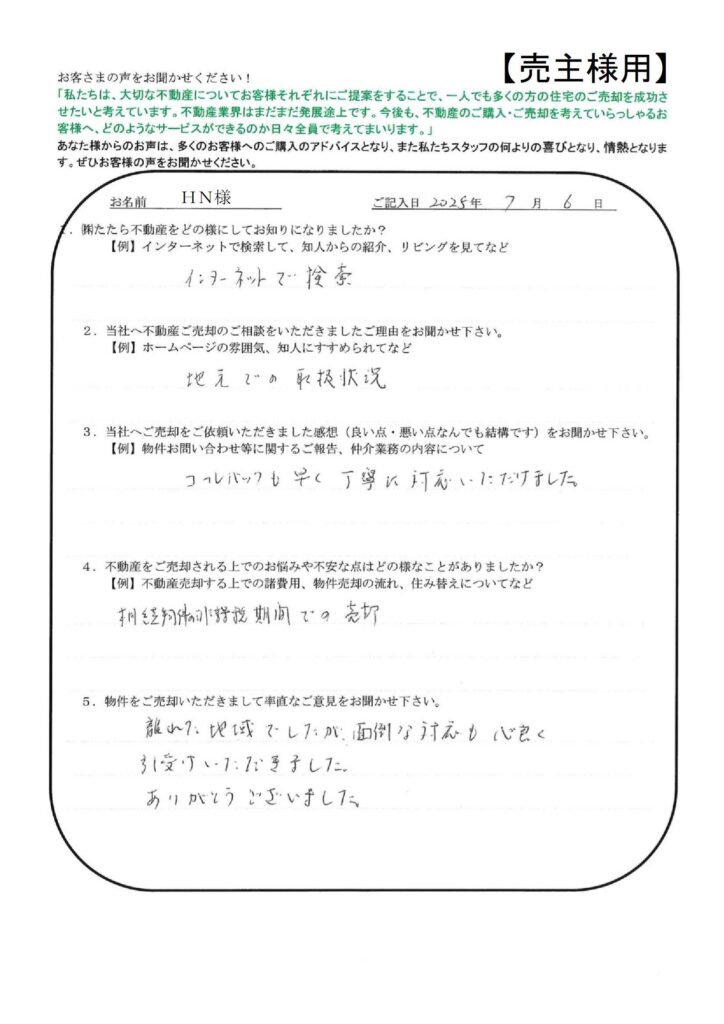 【売主様用】
お客さまの声をお聞かせください！
「私たちは、大切な不動産についてお客様それぞれにご提案をすることで、一人でも多くの方の住宅のご売却を成功さ
せたいと考えています。不動産業界はまだまだ発展途上です。今後も、不動産のご購入・ご売却を考えていらっしゃるお
客様へ、どのようなサービスができるのか日々全員で考えてまいります。」
あなた様からのお声は、多くのお客様へのご購入のアドバイスとなり、また私たちスタッフの何よりの喜びとなり、情熱となりま
す。ぜひお客様の声をお聞かせください。
お名前 HN様 ご記入日 2025年 7 月 6 日
1．㈱たたら不動産をどの様にしてお知りになりましたか？
【例】インターネットで検索して、知人からの紹介、リビングを見てなど
インターネットで検索
2．当社へ不動産ご売却のご相談をいただきましたご理由をお聞かせ下さい。
【例】ホームページの雰囲気、知人にすすめられてなど
地元での取扱状況
3．当社へご売却をご依頼いただきました感想（良い点・悪い点なんでも結構です）をお聞かせ下さい。
【例】物件お問い合わせ等に関するご報告、仲介業務の内容について
コールバックも早く丁寧に対応いただけました。
4．不動産をご売却される上でのお悩みや不安な点はどの様なことがありましたか？
【例】不動産売却する上での諸費用、物件売却の流れ、住み替えについてなど
相続物件の非課税期間での売却
5．物件をご売却いただきまして率直なご意見をお聞かせ下さい。
離れた地域でしたが、面倒な対応も心良く
引受けいただきました。
ありがとうございました。